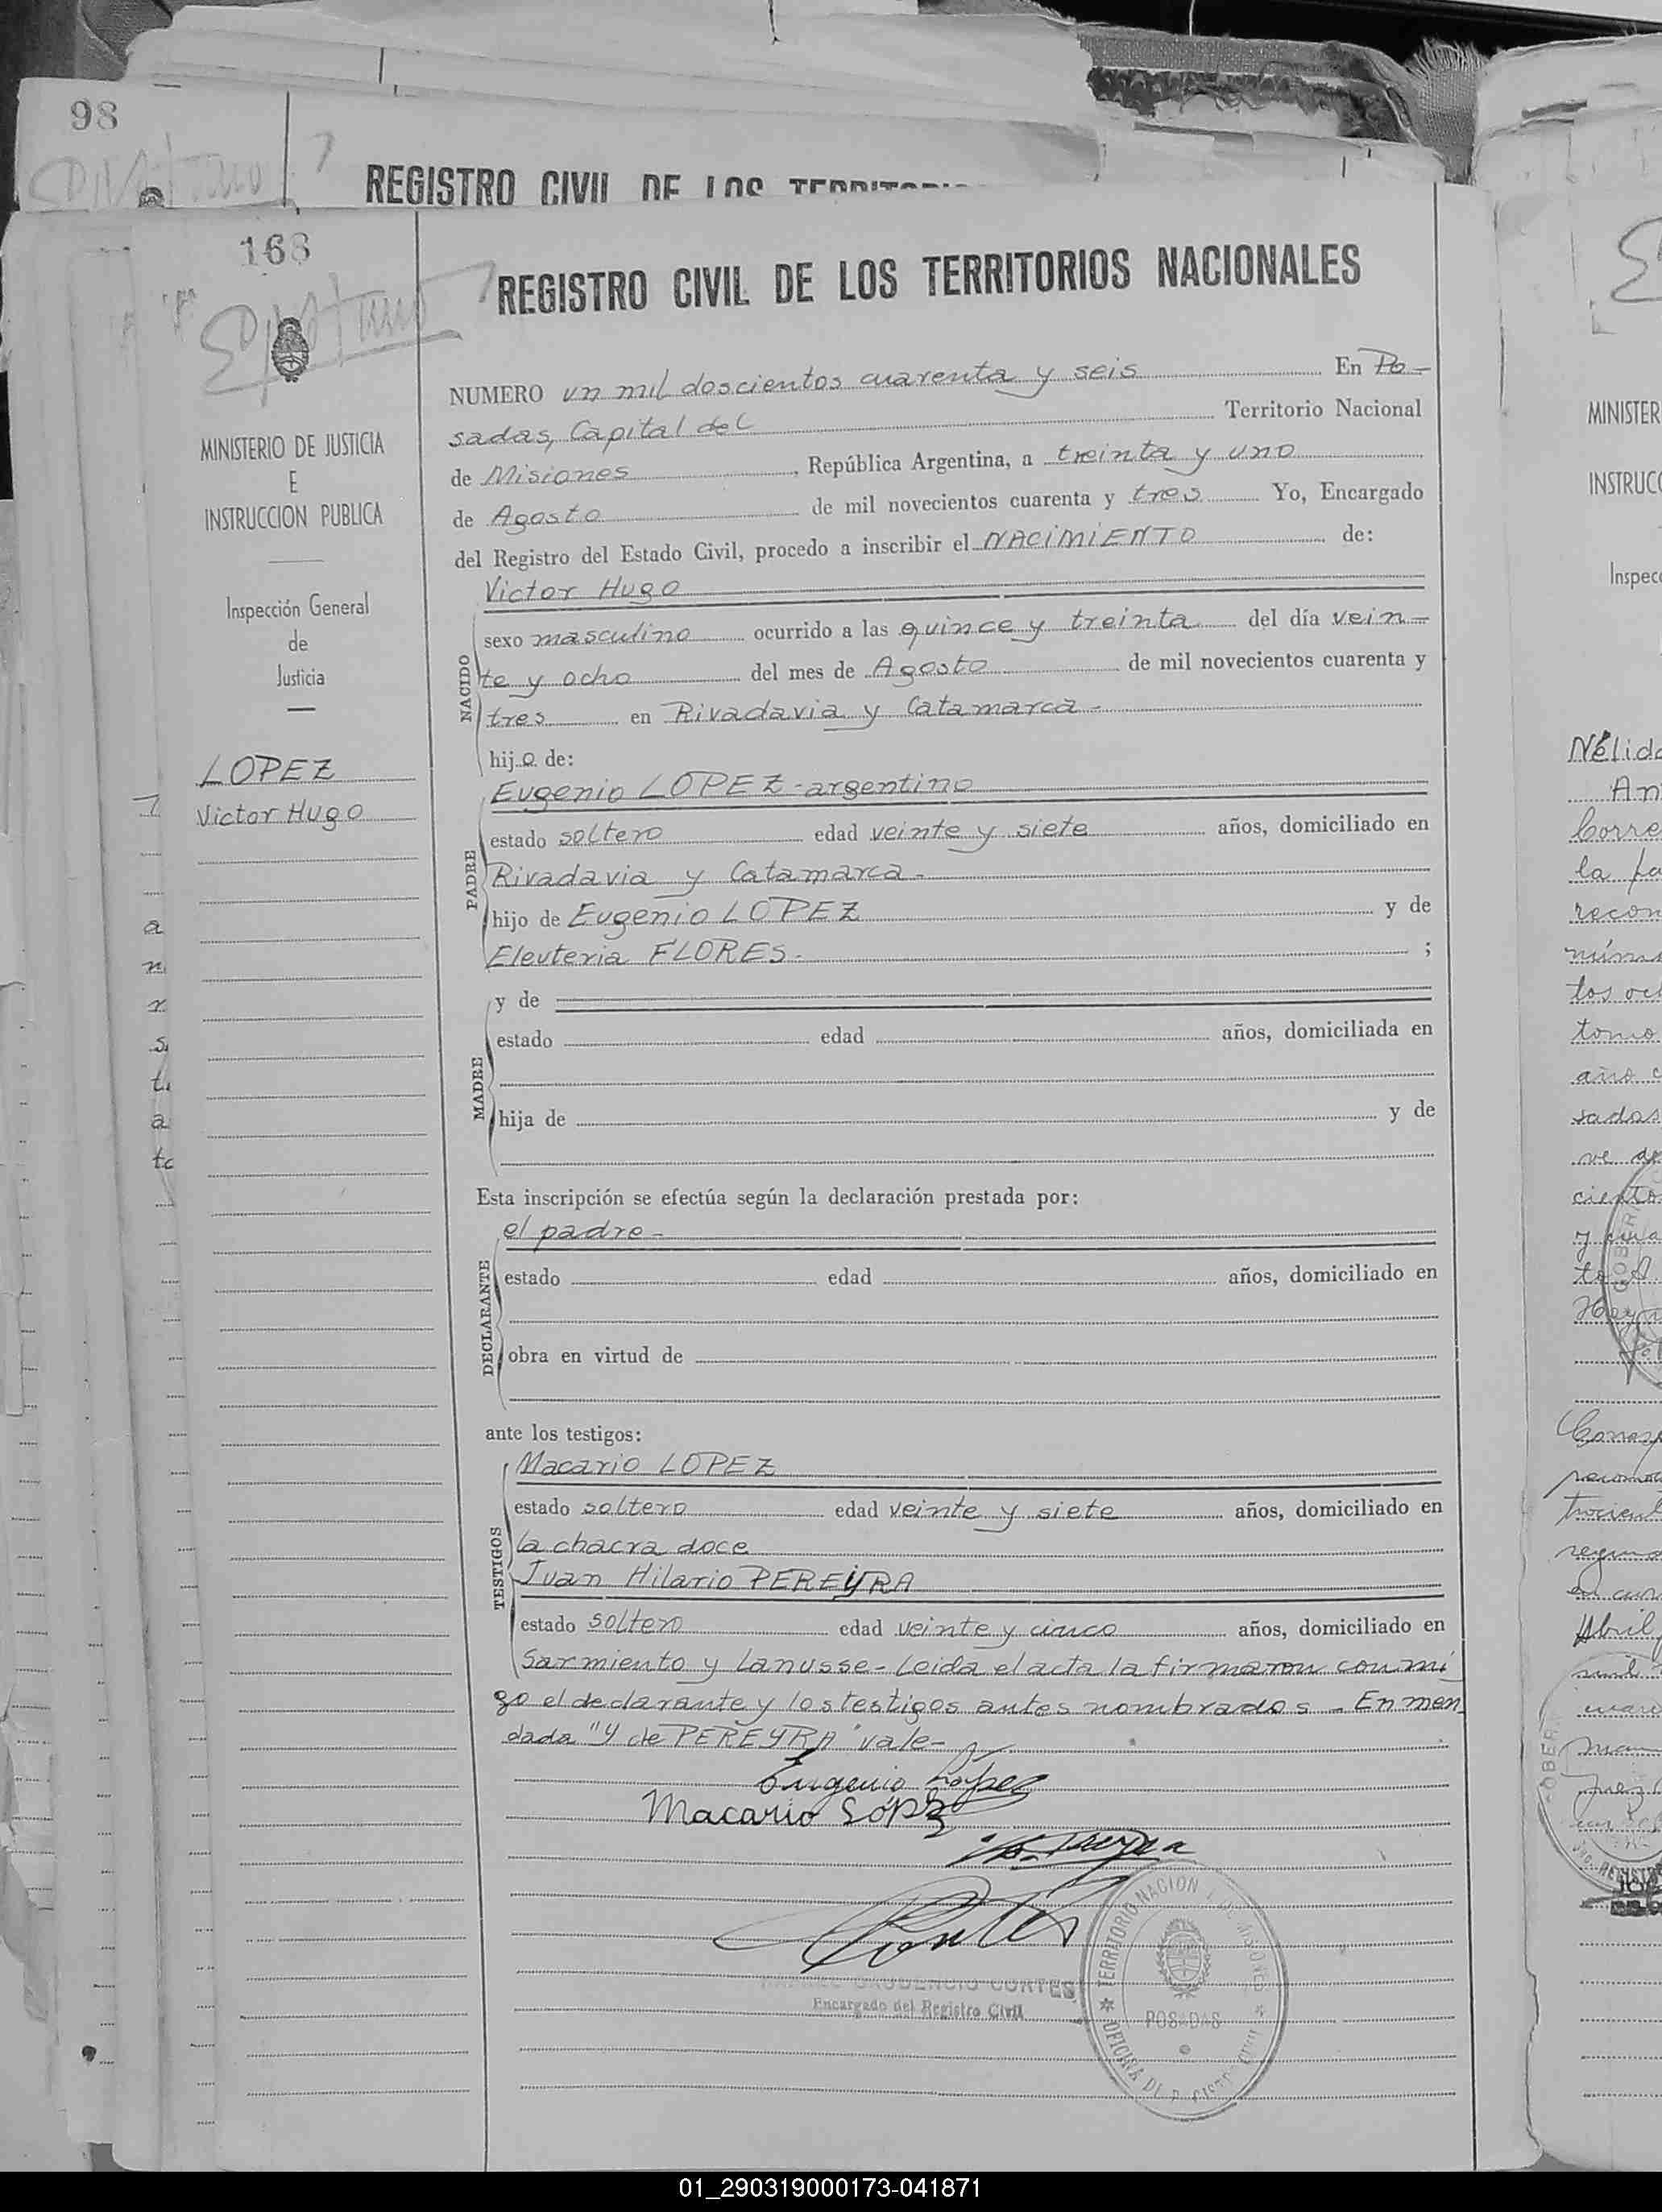 98
REGISTRO CIVIL DE LOS
168
REGISTRO CIVIL DE LOS TERRITORIOS NACIONALES
MINISTERIO DE JUSTICIA
E
INSTRUCCION PUBLICA
Inspección General
de
Justicia
LOPEZ
Victor Hugo
NUMERO un mil doscientos cuarenta y seis En Po-
sadas, Capital del Territorio Nacional
de Misiones, República Argentina, a treinta y uno
de Agosto de mil novecientos cuarenta y tres Yo, Encargado
del Registro del Estado Civil, procedo a inscribir el NACIMIENTO de:
NACIDO
Victor Hugo
sexo masculino ocurrido a las quince y treinta del día vein-
te y ocho del mes de Agosto de mil novecientos cuarenta y
tres en Rivadavia y Catamarca-
hijo de:
PADRE
Eugenio LOPEZ-argentino
estado soltero edad veinte y siete años, domiciliado en
Rivadavia y Catamarca-
hijo de Eugenio LOPEZ y de
Eleuteria FLORES- ;
MADRE
y de
estado edad años, domiciliada en
hija de y de
Esta inscripción se efectúa según la declaración prestada por:
DECLARANTE
el padre-
estado edad años, domiciliado en
obra en virtud de
ante los testigos:
TESTIGOS
Macario LOPEZ
estado soltero edad veinte y siete años, domiciliado en
la chacra doce
Juan Hilario PEREYRA
estado soltero edad veinte y cinco años, domiciliado en
Sarmiento y Lanusse-Leida el acta la firmaron conmi
go el declarante y los testigos antes nombrados - Enmen
dada "Y de PEREYRA" vale-
Eugenio López
Macario López
GAUDENCIO CORTES
Encargado del Registro Civil
TERRITORIO NACIONAL DE MISIONES
POSADAS
MINISTER
INSTRUCC
Inspecc
Nélida
01_290319000173-041871